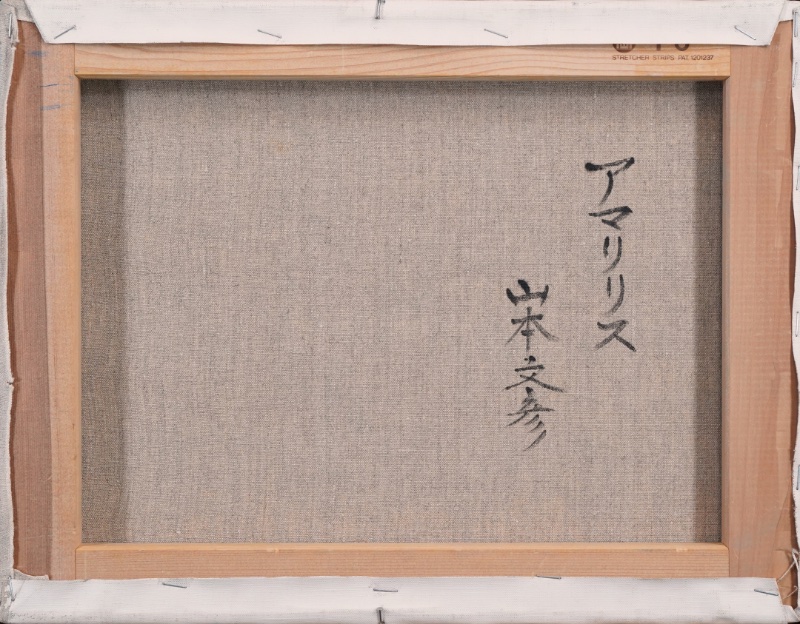 STRETCHER STRIPS PAT. 1201237
アマリリス
山本文彦